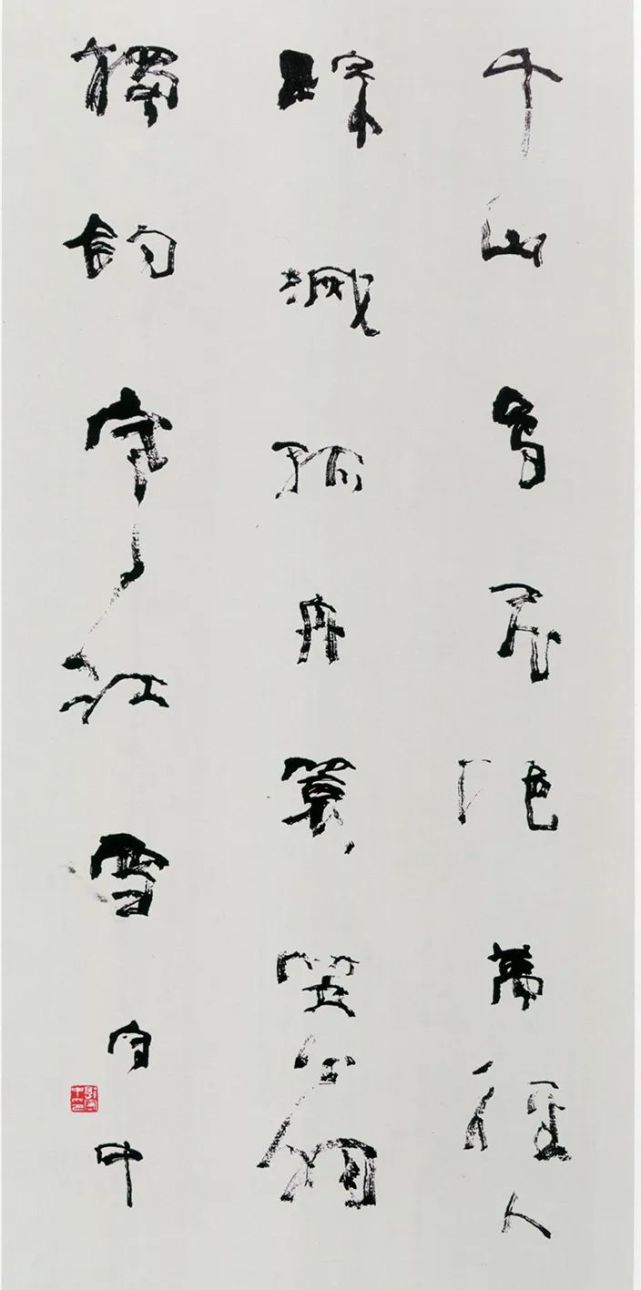 千山鳥飛絶萬徑人
踪滅孤舟蓑笠翁
獨釣寒江雪
守中